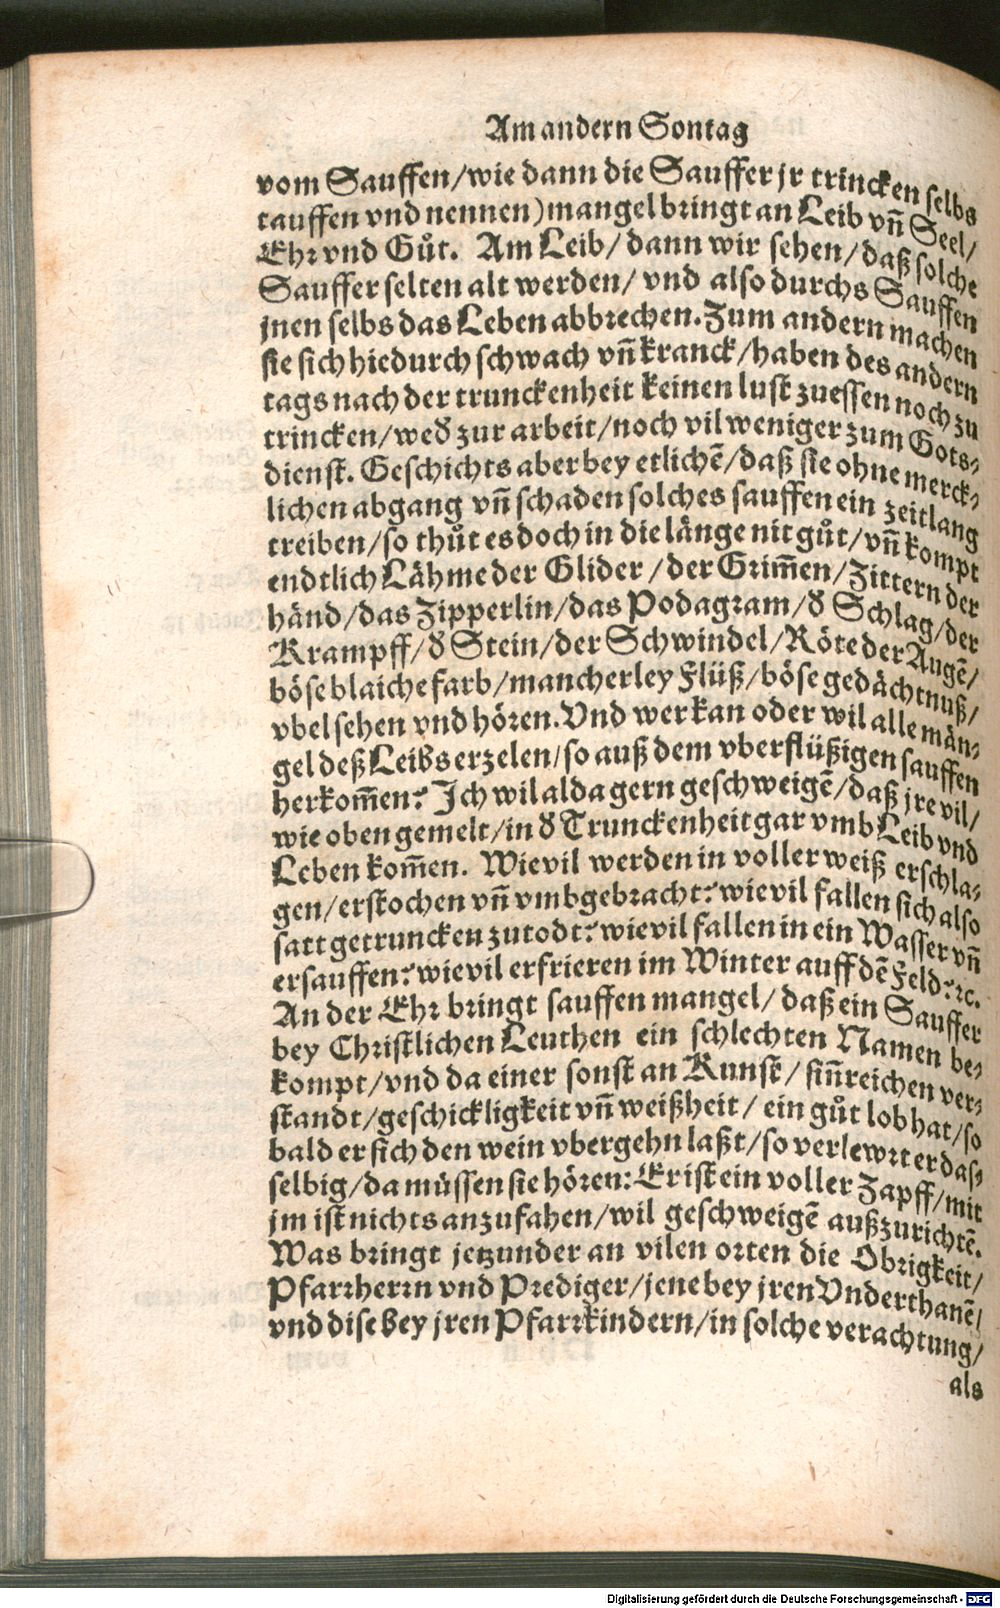 Am andern Sontag
vom Sauffen/wie dann die Sauffer jr trincken selbs
tauffen vnd nennen) mangel bringt an Leib vñ Seel/
Ehr vnd Gůt. Am Leib/ dann wir sehen/ daß solche
Sauffer selten alt werden/ vnd also durchs Sauffen
jnen selbs das Leben abbrechen. Zum andern machen
sie sich hiedurch schwach vñ kranck/ haben des andern
tags nach der trunckenheit keinen lust zuessen noch zu
trincken/ weð zur arbeit/ noch vil weniger zum Gots⸗
dienst. Geschichts aber bey etlichē/ daß sie ohne merck⸗
lichen abgang vñ schaden solches sauffen ein zeitlang
treiben/ so thůt es doch in die länge nit gůt/ vñ kompt
endtlich Lähme der Glider/ der Grim̃en/ Zittern der
händ/ das Zipperlin/ das Podagram/ ð Schlag/ der
Krampff/ ð Stein/ der Schwindel/ Röte der Augē/
böse blaiche farb/ mancherley Flüß/ böse gedächtnuß/
vbel sehen vnd hören. Vnd wer kan oder wil alle män⸗
gel deß Leibs erzelen/ so auß dem vberflüßigen sauffen
herkom̃en? Ich wil alda gern geschweigē/ daß jre vil/
wie oben gemelt/ in ð Trunckenheit gar vmb Leib vnd
Leben kom̃en. Wievil werden in voller weiß erschla⸗
gen/ erstochen vñ vmbgebracht? wievil fallen sich also
satt getruncken zutodt? wievil fallen in ein Wasser vñ
ersauffen? wievil erfrieren im Winter auff dē Feld? ꝛc.
An der Ehr bringt sauffen mangel/ daß ein Sauffer
bey Christlichen Leuthen ein schlechten Namen be⸗
kompt/ vnd da einer sonst an Kunst/ sin̄reichen ver⸗
standt/ geschickligkeit vñ weißheit/ ein gůt lob hat/ so
bald er sich den wein vbergehn laßt/ so verlewrt er das⸗
selbig/ da müssen sie hören: Er ist ein voller Zapff/ mit
jm ist nichts anzufahen/ wil geschweigē außzurichtē.
Was bringt jetzunder an vilen orten die Obrigkeit/
Pfarrherrn vnd Prediger/ jene bey jren Vnderthanē/
vnd dise bey jren Pfarrkindern/ in solche verachtung/
als
Digitalisierung gefördert durch die Deutsche Forschungsgemeinschaft - DFG